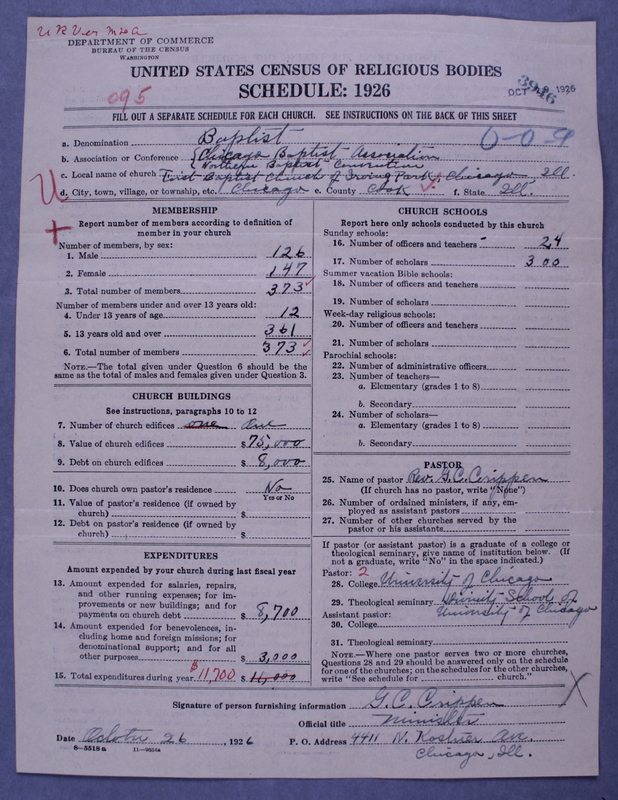 DEPARTMENT OF COMMERCE
BUREAU OF THE CENSUS
WASHINGTON
UNITED STATES CENSUS OF RELIGIOUS BODIES
SCHEDULE: 1926
OCT 1926
095
FILL OUT A SEPARATE SCHEDULE FOR EACH CHURCH. SEE INSTRUCTIONS ON THE BACK OF THIS SHEET
a. Denomination Baptist
0-0-9
b. Association or Conference { Chicago Baptist Association
Northern Baptist Convention
c. Local name of church First Baptist Church of Irving Park, Chicago Ill.
d. City, town, village, or township, etc. Chicago e. County Cook f. State Ill.
MEMBERSHIP
Report number of members according to definition of
member in your church
Number of members, by sex:
1. Male 126
2. Female 147
3. Total number of members 373
Number of members under and over 13 years old:
4. Under 13 years of age 12
5. 13 years old and over 361
6. Total number of members 373
NOTE.—The total given under Question 6 should be
same as the total of males and females given under Question 3.
CHURCH BUILDINGS
See instructions, paragraphs 10 to 12
7. Number of church edifices one One
8. Value of church edifices $75,000
9. Debt on church edifices $8,000
10. Does church own pastor's residence No
Yes or No
11. Value of pastor's residence (if owned by
church) $
12. Debt on pastor's residence (if owned by
church) $
EXPENDITURES
Amount expended by your church during last fiscal year
13. Amount expended for salaries, repairs,
and other running expenses; for im-
provements or new buildings; and for
payments on church debt $8,700
14. Amount expended for benevolences, in-
cluding home and foreign missions; for
denominational support; and for all
other purposes 3,000
15. Total expenditures during year $11,700 $11,000
CHURCH SCHOOLS
Report here only schools conducted by this church
Sunday schools:
16. Number of officers and teachers 24
17. Number of scholars 300
Summer vacation Bible schools:
18. Number of officers and teachers
19. Number of scholars
Week-day religious schools:
20. Number of officers and teachers
21. Number of scholars
Parochial schools:
22. Number of administrative officers
23. Number of teachers—
a. Elementary (grades 1 to 8)
b. Secondary
24. Number of scholars—
a. Elementary (grades 1 to 8)
b. Secondary
PASTOR
25. Name of pastor Rev. G. C. Crippen
(If church has no pastor, write "None")
26. Number of ordained ministers, if any, em-
ployed as assistant pastors
27. Number of other churches served by the
pastor or his assistants
If pastor (or assistant pastor) is a graduate of a college or
theological seminary, give name of institution below. (If
not a graduate, write "No" in the space indicated.)
Pastor: 2
28. College University of Chicago
29. Theological seminary Divinity School of
University of Chicago
Assistant pastor:
30. College
31. Theological seminary
NOTE.—Where one pastor serves two or more churches,
Questions 28 and 29 should be answered only on the schedule
for one of the churches; on the schedules for the other churches,
write "See schedule for church."
Signature of person furnishing information G. C. Crippen
Official title Minister
Date October 26, 1926 P. O. Address 4411 N. Kostner Ave.
Chicago, Ill.
6—5518a